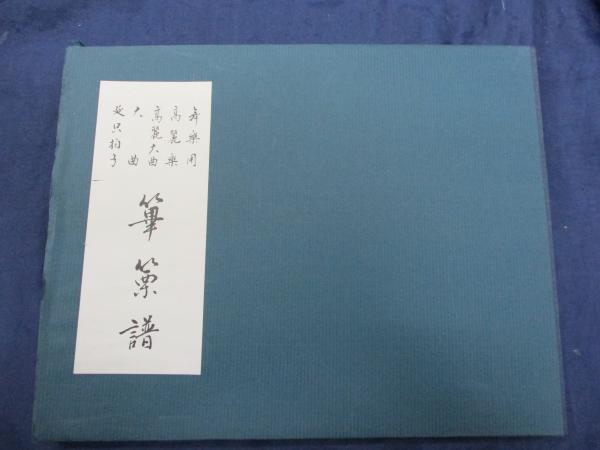 舞楽用
高麗楽
高麗大曲
大曲
延只拍子
篳篥譜